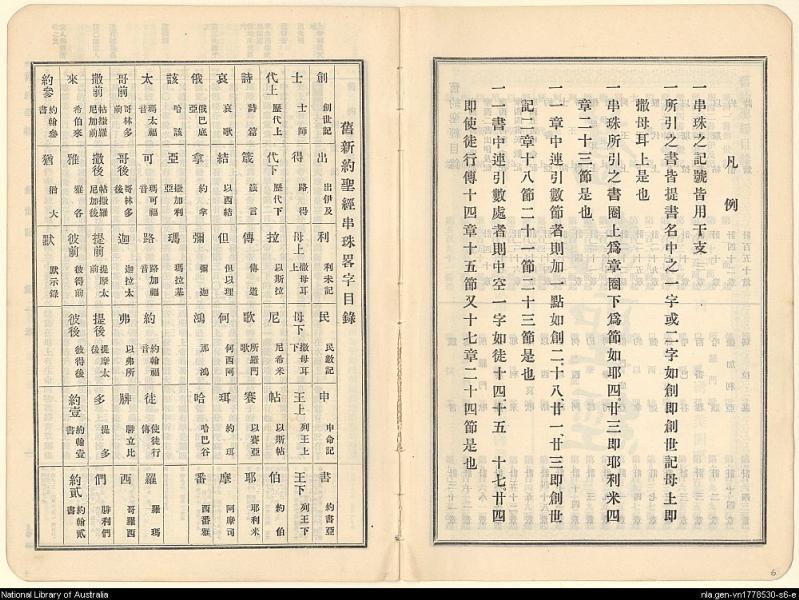 凡例
一串珠之記號皆用干支
所引之書皆提書名中之一字或二字如創即創世記母上即
撒母耳上是也
一串珠所引之書圈上爲章圈下爲節如耶四。廿三即耶利米四
章二十三節是也
一一章中連引數節者則加一點如創二。十八、廿一、廿三即創世
記二章十八節二十一節二十三節是也
一一書中連引數處者則中空一字如徒十四。十五 十七。廿四
即使徒行傳十四章十五節又十七章二十四節是也
舊新約聖經串珠畧字目錄
創 創世記 出 出伊及 利 利未記 民 民數記 申 申命記 書 約書亞
士 士師 得 路得 母上 撒母耳上 母下 撒母耳下 王上 列王上 王下 列王下
代上 歷代上 代下 歷代下 拉 以斯拉 尼 尼希米 帖 以斯帖 伯 約伯
詩 詩篇 箴 箴言 傳 傳道 歌 所羅門歌 賽 以賽亞 耶 耶利米
哀 哀歌 結 以西結 但 但以理 何 何西阿 珥 約珥 摩 阿摩司
俄 俄巴底亞 拿 約拿 彌 彌迦 鴻 那鴻 哈 哈巴谷 番 西番雅
該 哈該 亞 撒加利亞 瑪 瑪拉基
太 瑪太福音 可 瑪可福音 路 路加福音 約 約翰福音 徒 使徒行傳 羅 羅瑪
哥前 哥林多前 哥後 哥林多後 迦 迦拉太 弗 以弗所 腓 腓立比 西 哥羅西
撒前 帖撒羅尼加前 撒後 帖撒羅尼加後 提前 提摩太前 提後 提摩太後 多 提多 們 腓利們
來 希伯來 雅 雅各 彼前 彼得前 彼後 彼得後 約壹 約翰壹書 約貳 約翰貳書
約參 約翰參書 猶 猶大 默 默示錄
6
National Library of Australia
nla.gen-vn1778530-s6-e